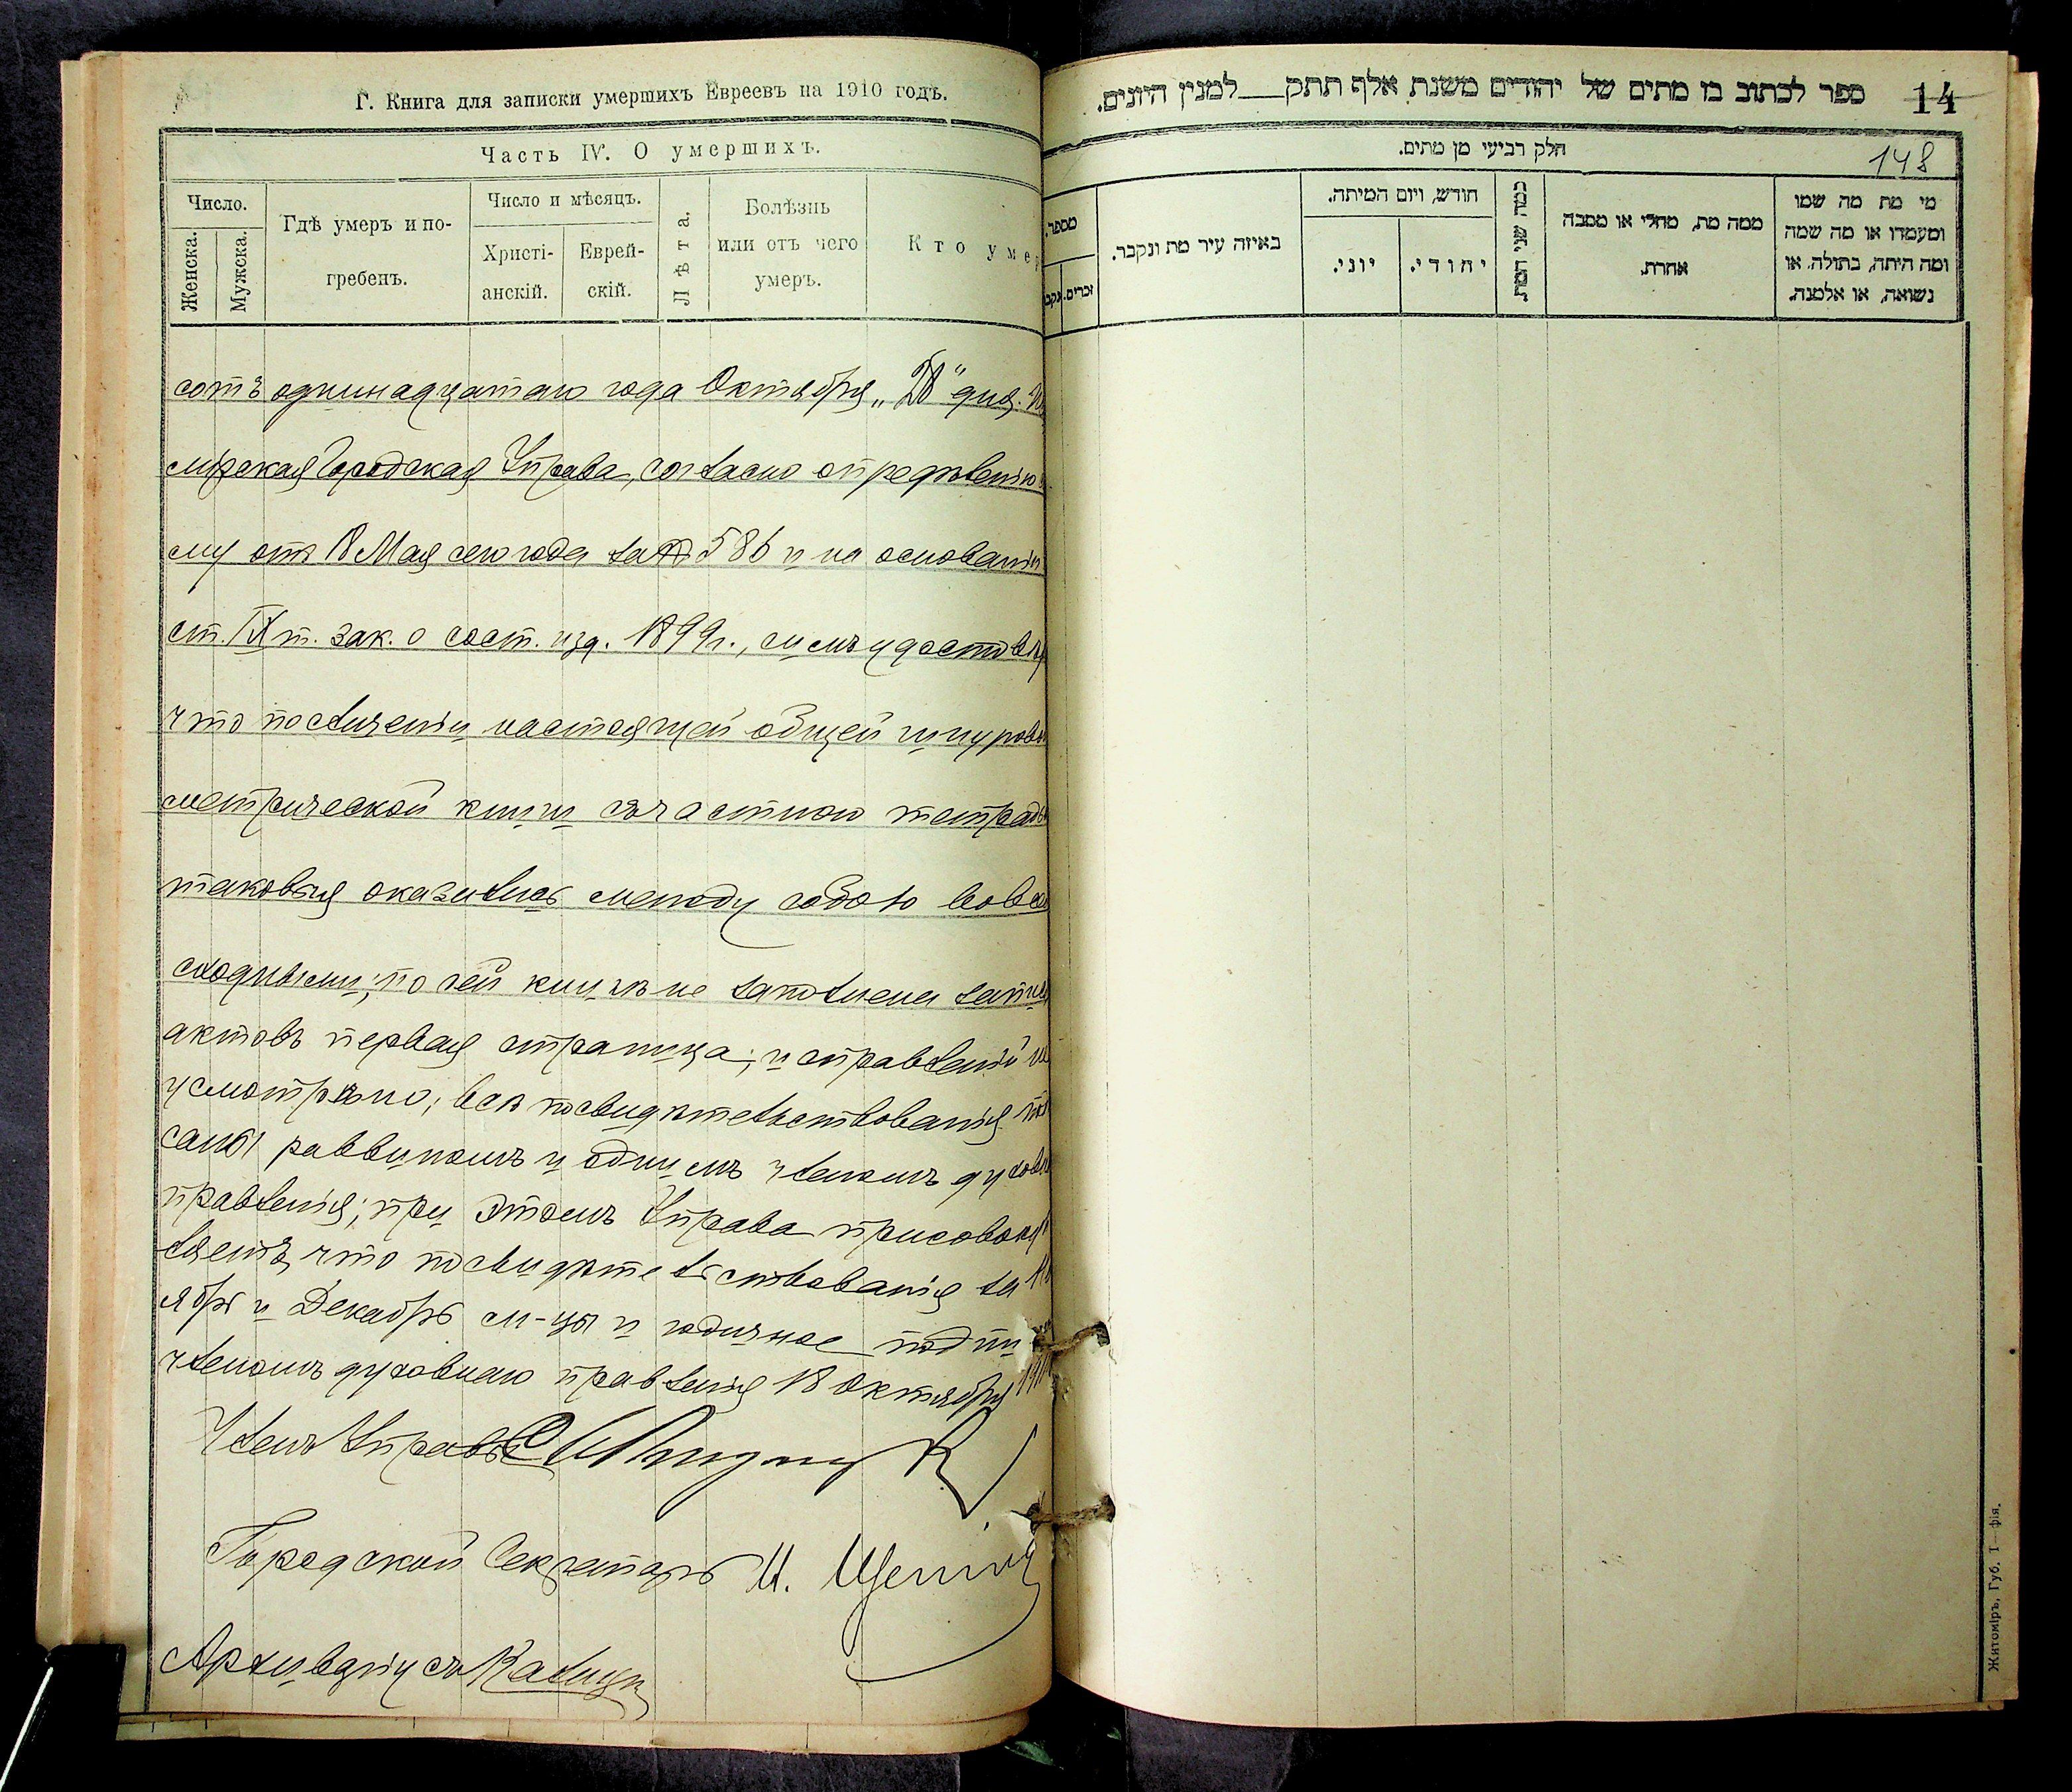 Г. Книга для записки умершихъ Евреевъ на 1910 годъ.
Часть IV. О умершихъ.
Число.
Женска.
Мужска.
Гдѣ умеръ и по-
гребенъ.
Число и мѣсяцъ.
Христі-
анскій.
Еврей-
скій.
Лѣта.
Болѣзнь
или отъ чего
умеръ.
Кто умер
сотъ одиннадцатаго года Октября „20" дня.
мірская Городская Управа, согласно опредѣленію
му отъ 18 Мая сего года за № 586 и на основаніи
ст. IX т. Зак. о сост. изд. 1899 г., симъ удостовѣр
что по сличеніи настоящей общей шнурово
метрической книги съ частною тетрадью
таковыя оказались между собою во все
сходными; по сей книгѣ не заполнена запис
актовъ первая страница; исправленій не
усмотрѣно; всѣ посвидѣтельствованія под
саны раввиномъ и однимъ членомъ духовн
правленія; при этомъ Управа присовоку
ляетъ, что посвидѣтельствованія за Но
ябрь и Декабрь м-цы и годичное подпи
членомъ духовнаго правленія 18 Октября 1911
Членъ Управы
Городской Секретарь И.
Архиваріусъ
ספר לכתוב בו מתים של יהודים משנת אלף תתק___למנין היונים.
14
חלק רביעי מן מתים.
148
מספר.
זכרים.
נקב
באיזה עיר מת ונקבר.
חודש, ויום המיתה.
יוני.
יהודי.
כמה שני המת
ממה מת, מחלי או מסבה
אחרת.
מי מת מה שמו
ומעמדו או מה שמה
ומה היתה, בתולה, או
נשואה, או אלמנה.
Житоміръ, Губ. Т—фія.